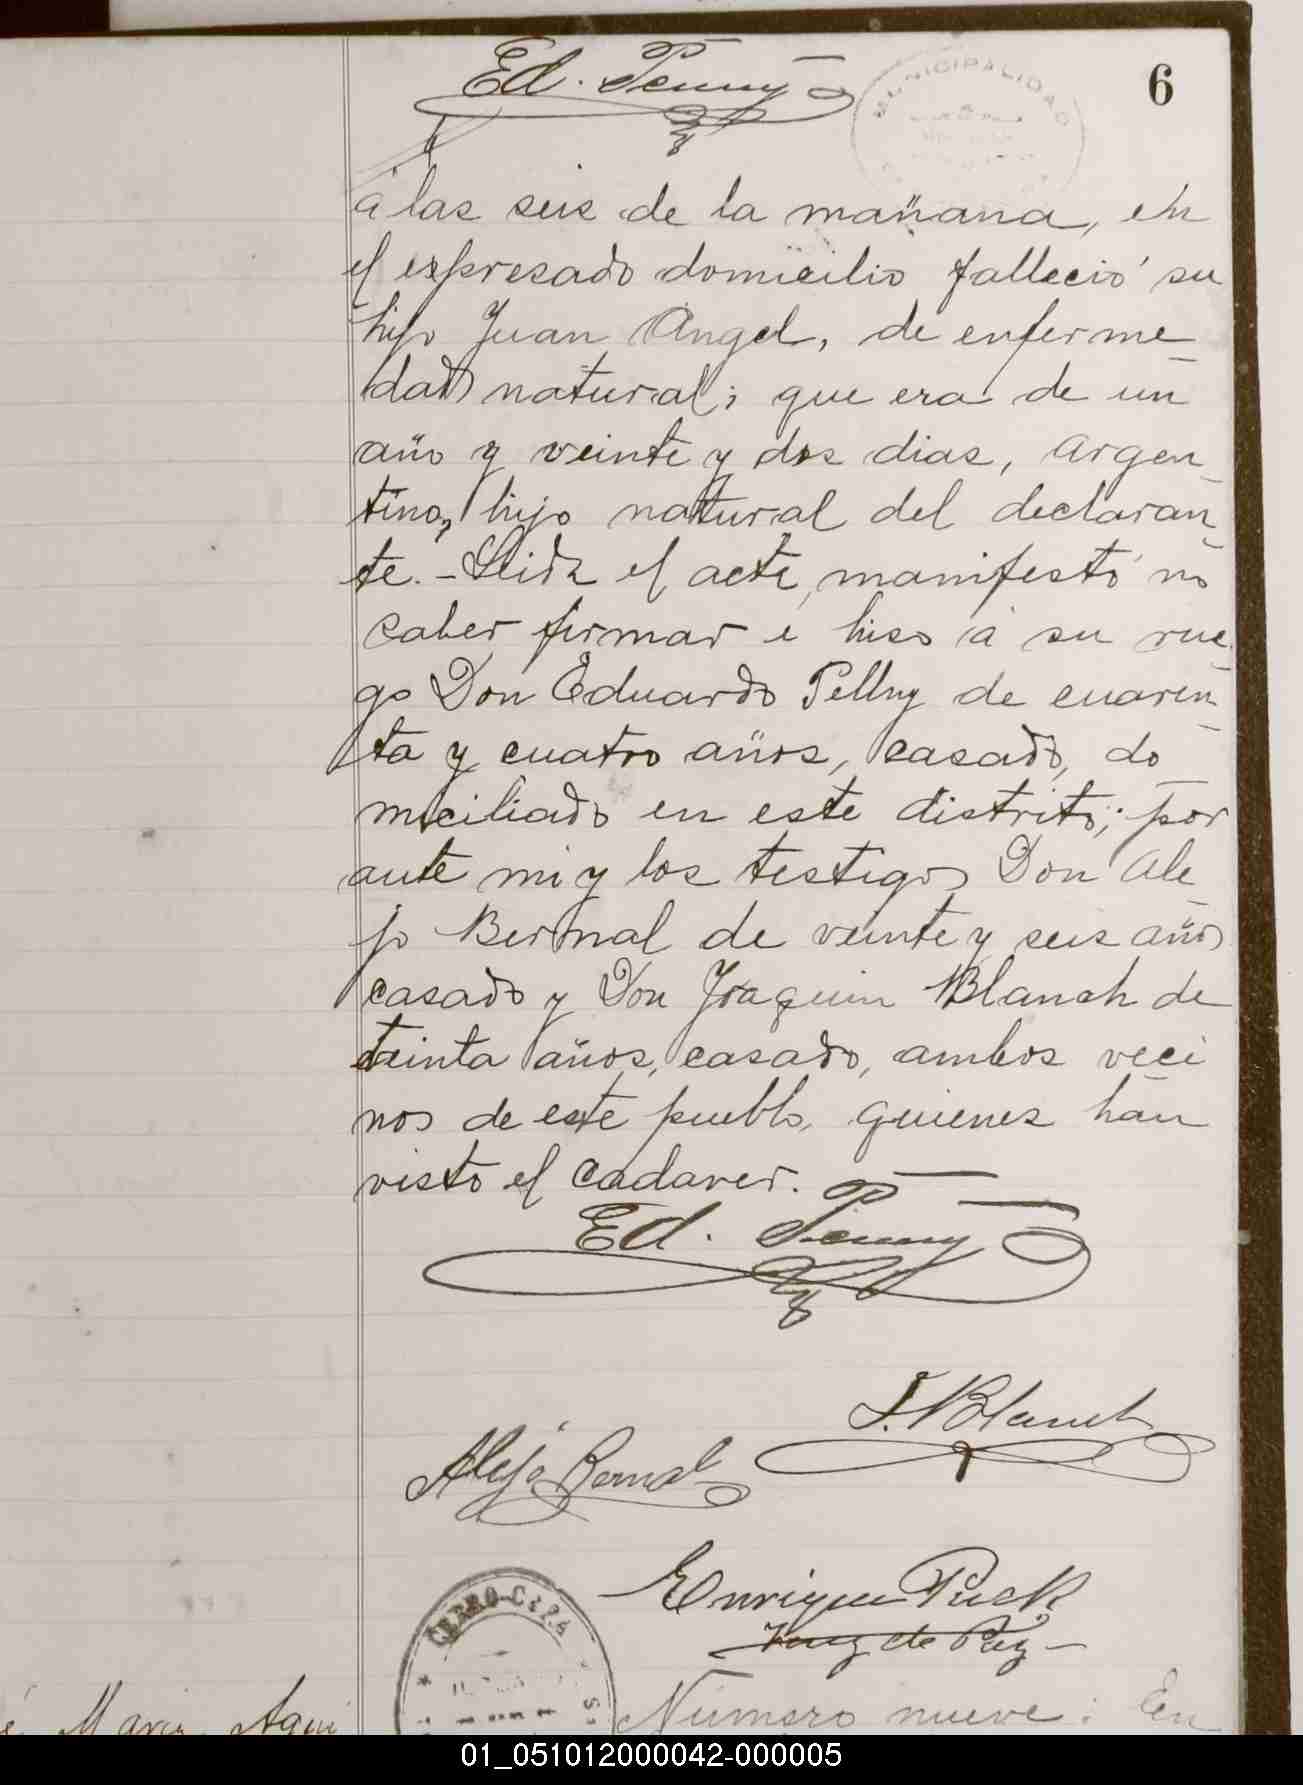 Ed. Penny
MUNICIPALIDAD
6
á las seis de la mañana, en
el expresado domicilio falleció su
hijo Juan Angel, de enferme
dad natural; que era de un
año y veinte y dos dias, argen
tino, hijo natural del declaran
te. - Leida el acta, manifestó no
saber firmar e hiso á su rue
go Don Eduardo Penny de cuaren
ta y cuatro años, casado, do
miciliado en este distrito; por
ante mi y los testigos Don Ale
jo Bernal de veinte y seis años
casado y Don Joaquin Blanch de
treinta años, casado, ambos veci
nos de este pueblo, quienes han
visto el cadaver.
Ed. Penny
J. Blanch
Alejo Bernal
Enrique Puck
Juez de Paz
CERRO-CORÁ
Maria Aqui
Número nueve: En
01_051012000042-000005